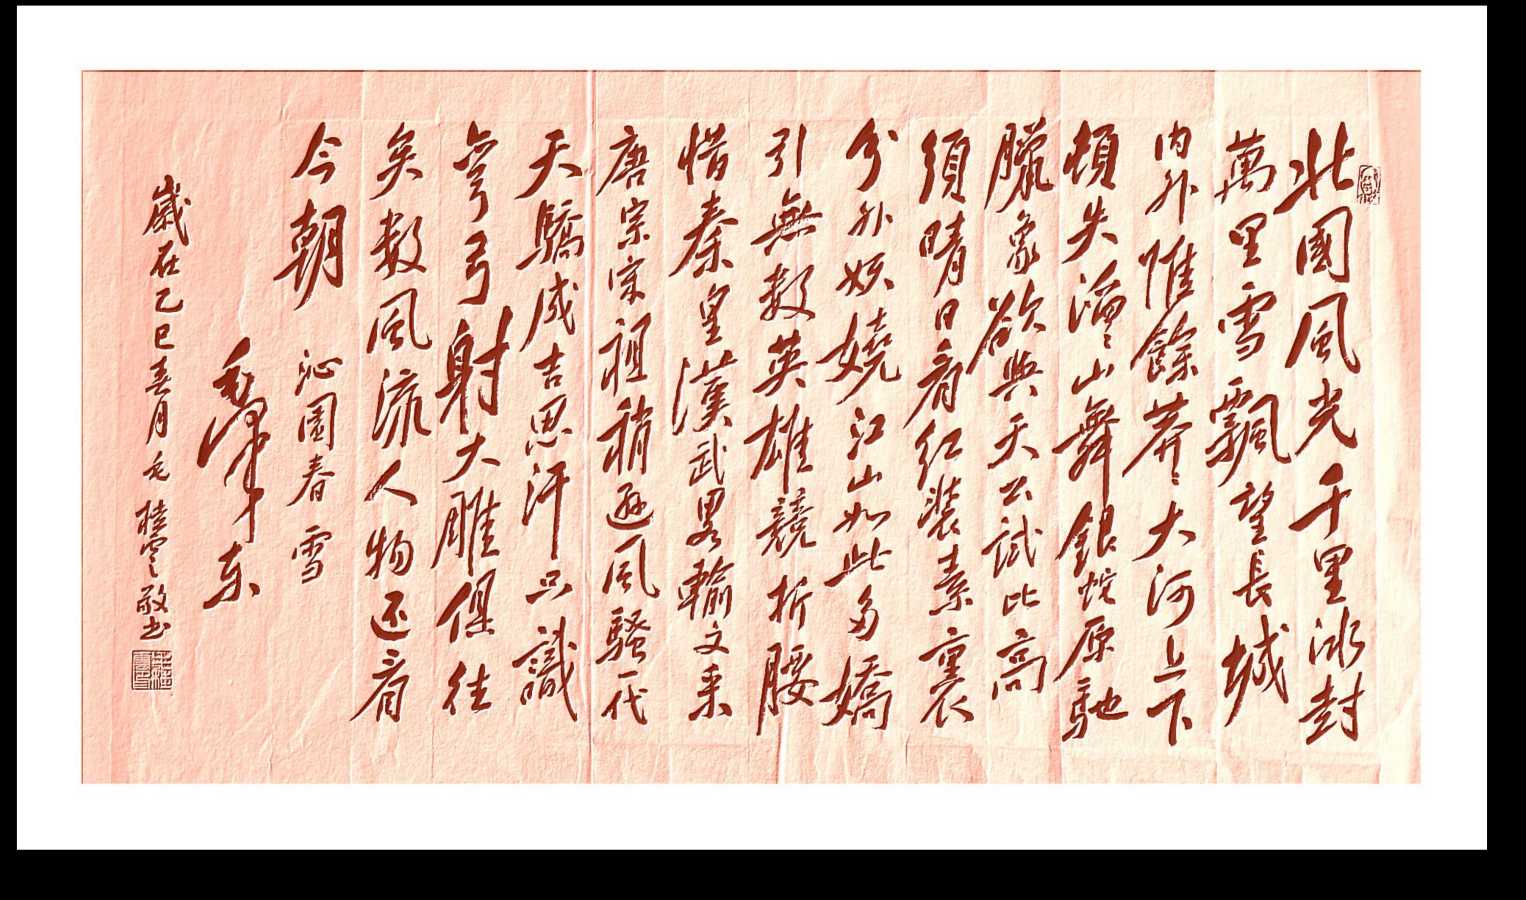 北國風光千里冰封
萬里雪飄望長城
内外惟餘莽々大河上下
頓失滔々山舞銀蛇原馳
臘象欲與天公試比高
須晴日看红裝素裹
分外妖嬈江山如此多嬌
引無數英雄競折腰
惜秦皇漢武畧輸文采
唐宗宋祖稍遜風騷一代
天驕成吉思汗只識
弯弓射大雕俱往
矣数風流人物还看
今朝 沁園春 雪
毛澤东
歲在乙巳春月毛桂雲敬书